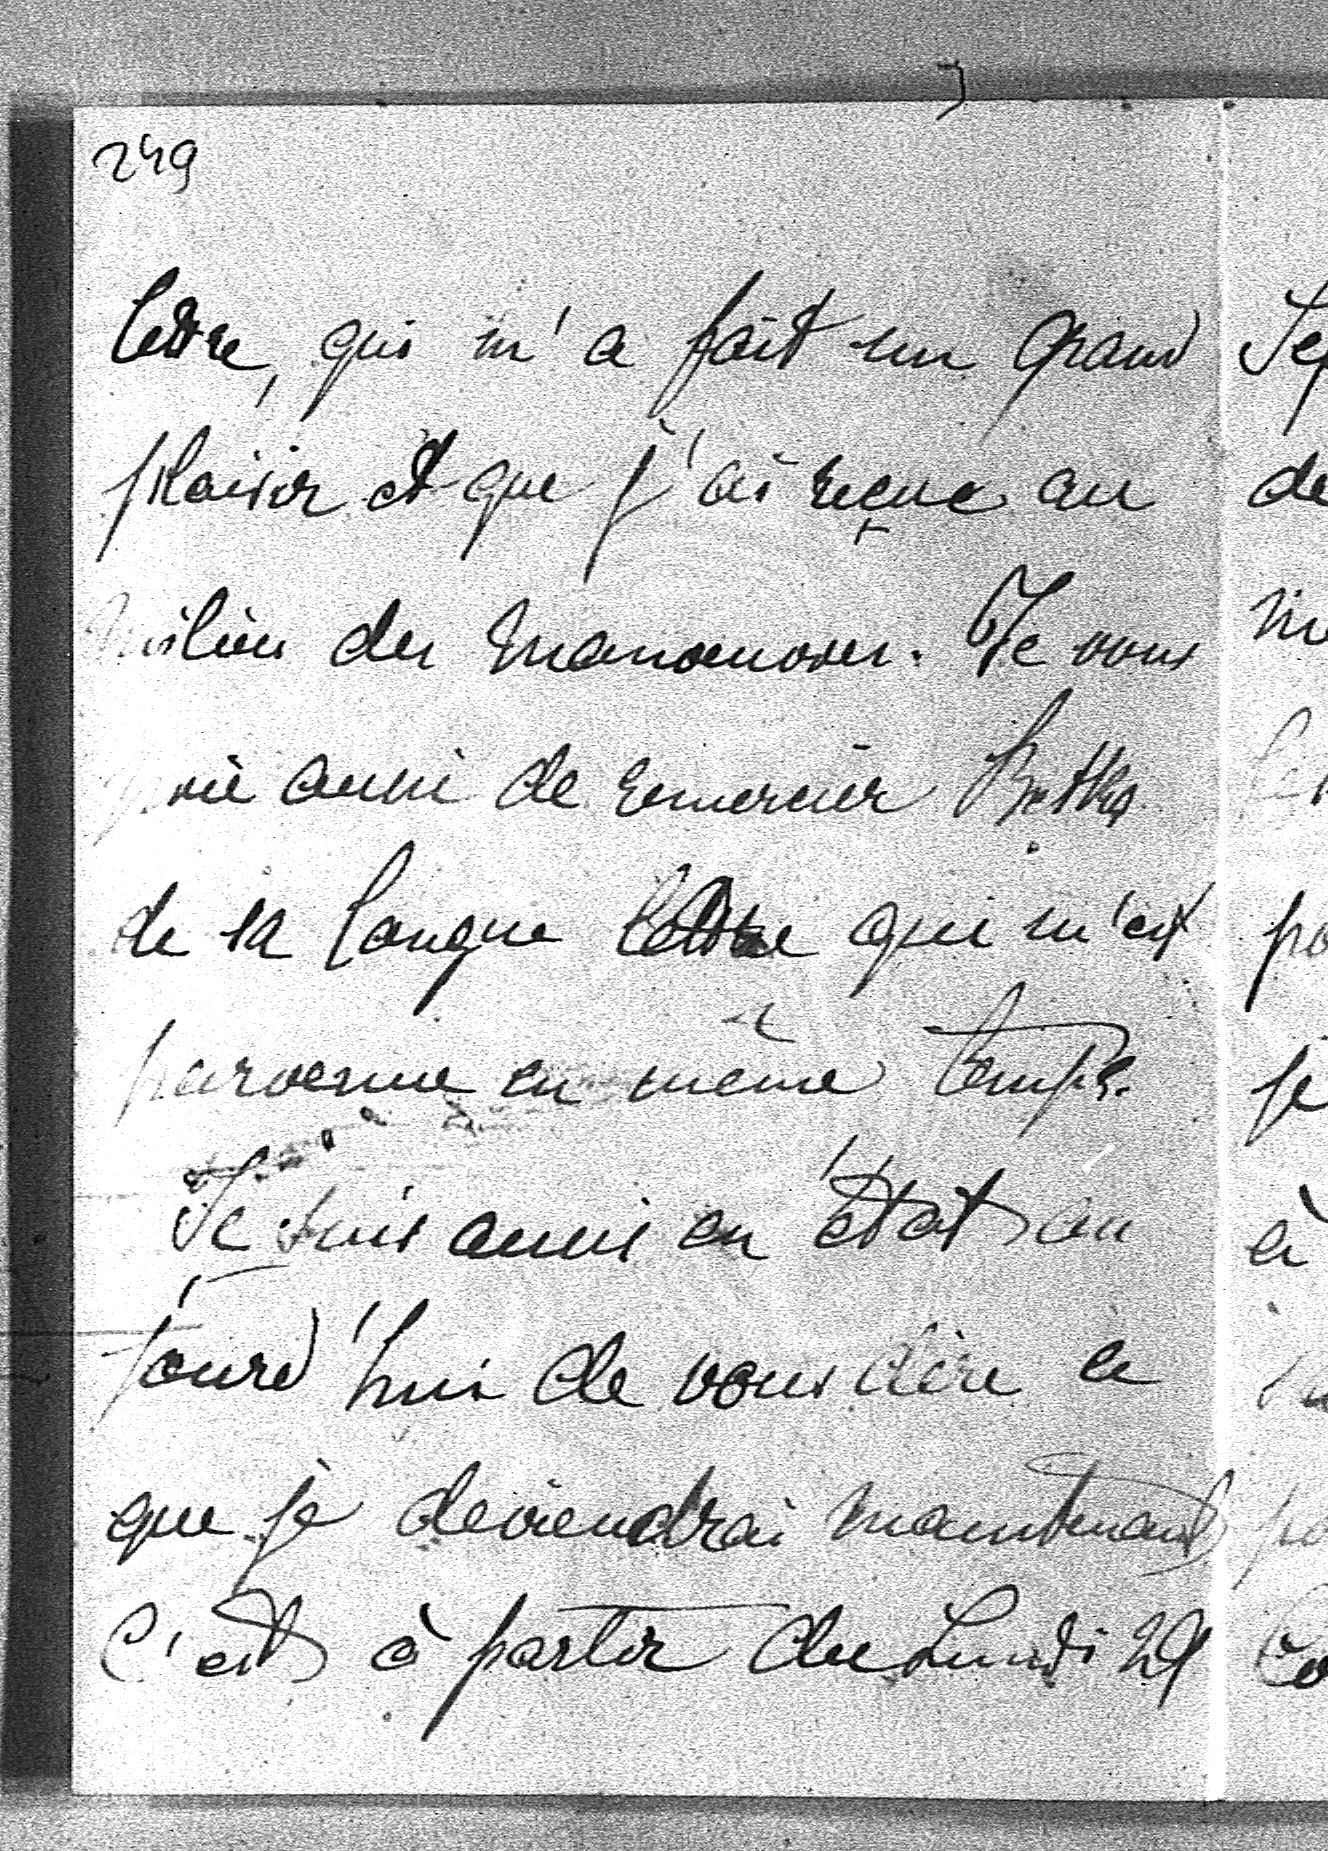 249
lettre, qui m'a fait un grand
plaisir et que j'ai reçue au
milieu des manoeuvres. Je vous
prie aussi de remercier
de sa longue lettre qui m'est
parvenue en même temps.
Je suis aussi en état au
jourd'hui de vous dire ce
que je deviendrai maintenant
C'est à partir du Lundi 29